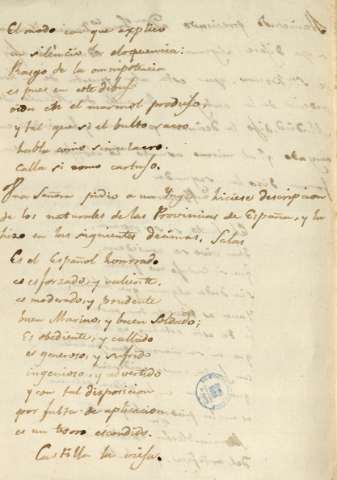 El modo con que explico
en silencio la eloquencia:
Rasgo de la omnipotencia
es pues en este dibujo
en el marmol produjo,
y tal que si el bulto sacro
habla como simulacro
calla si como cartujo.
Una Señora pidio a un Ingles hiciese descripcion
de los naturales de las Provincias de España, y lo
hizo en las siguientes decimas.
Es el Español honrrado
es esforzado, y valiente
es moderado, y prudente
buen Marino, y buen Soldado;
Es obediente, y callado
es generoso, y sufrido
ingenioso, y advertido
y con tal disposicion
por falta de aplicacion
es un tesoro escondido.
Castilla la vieja.